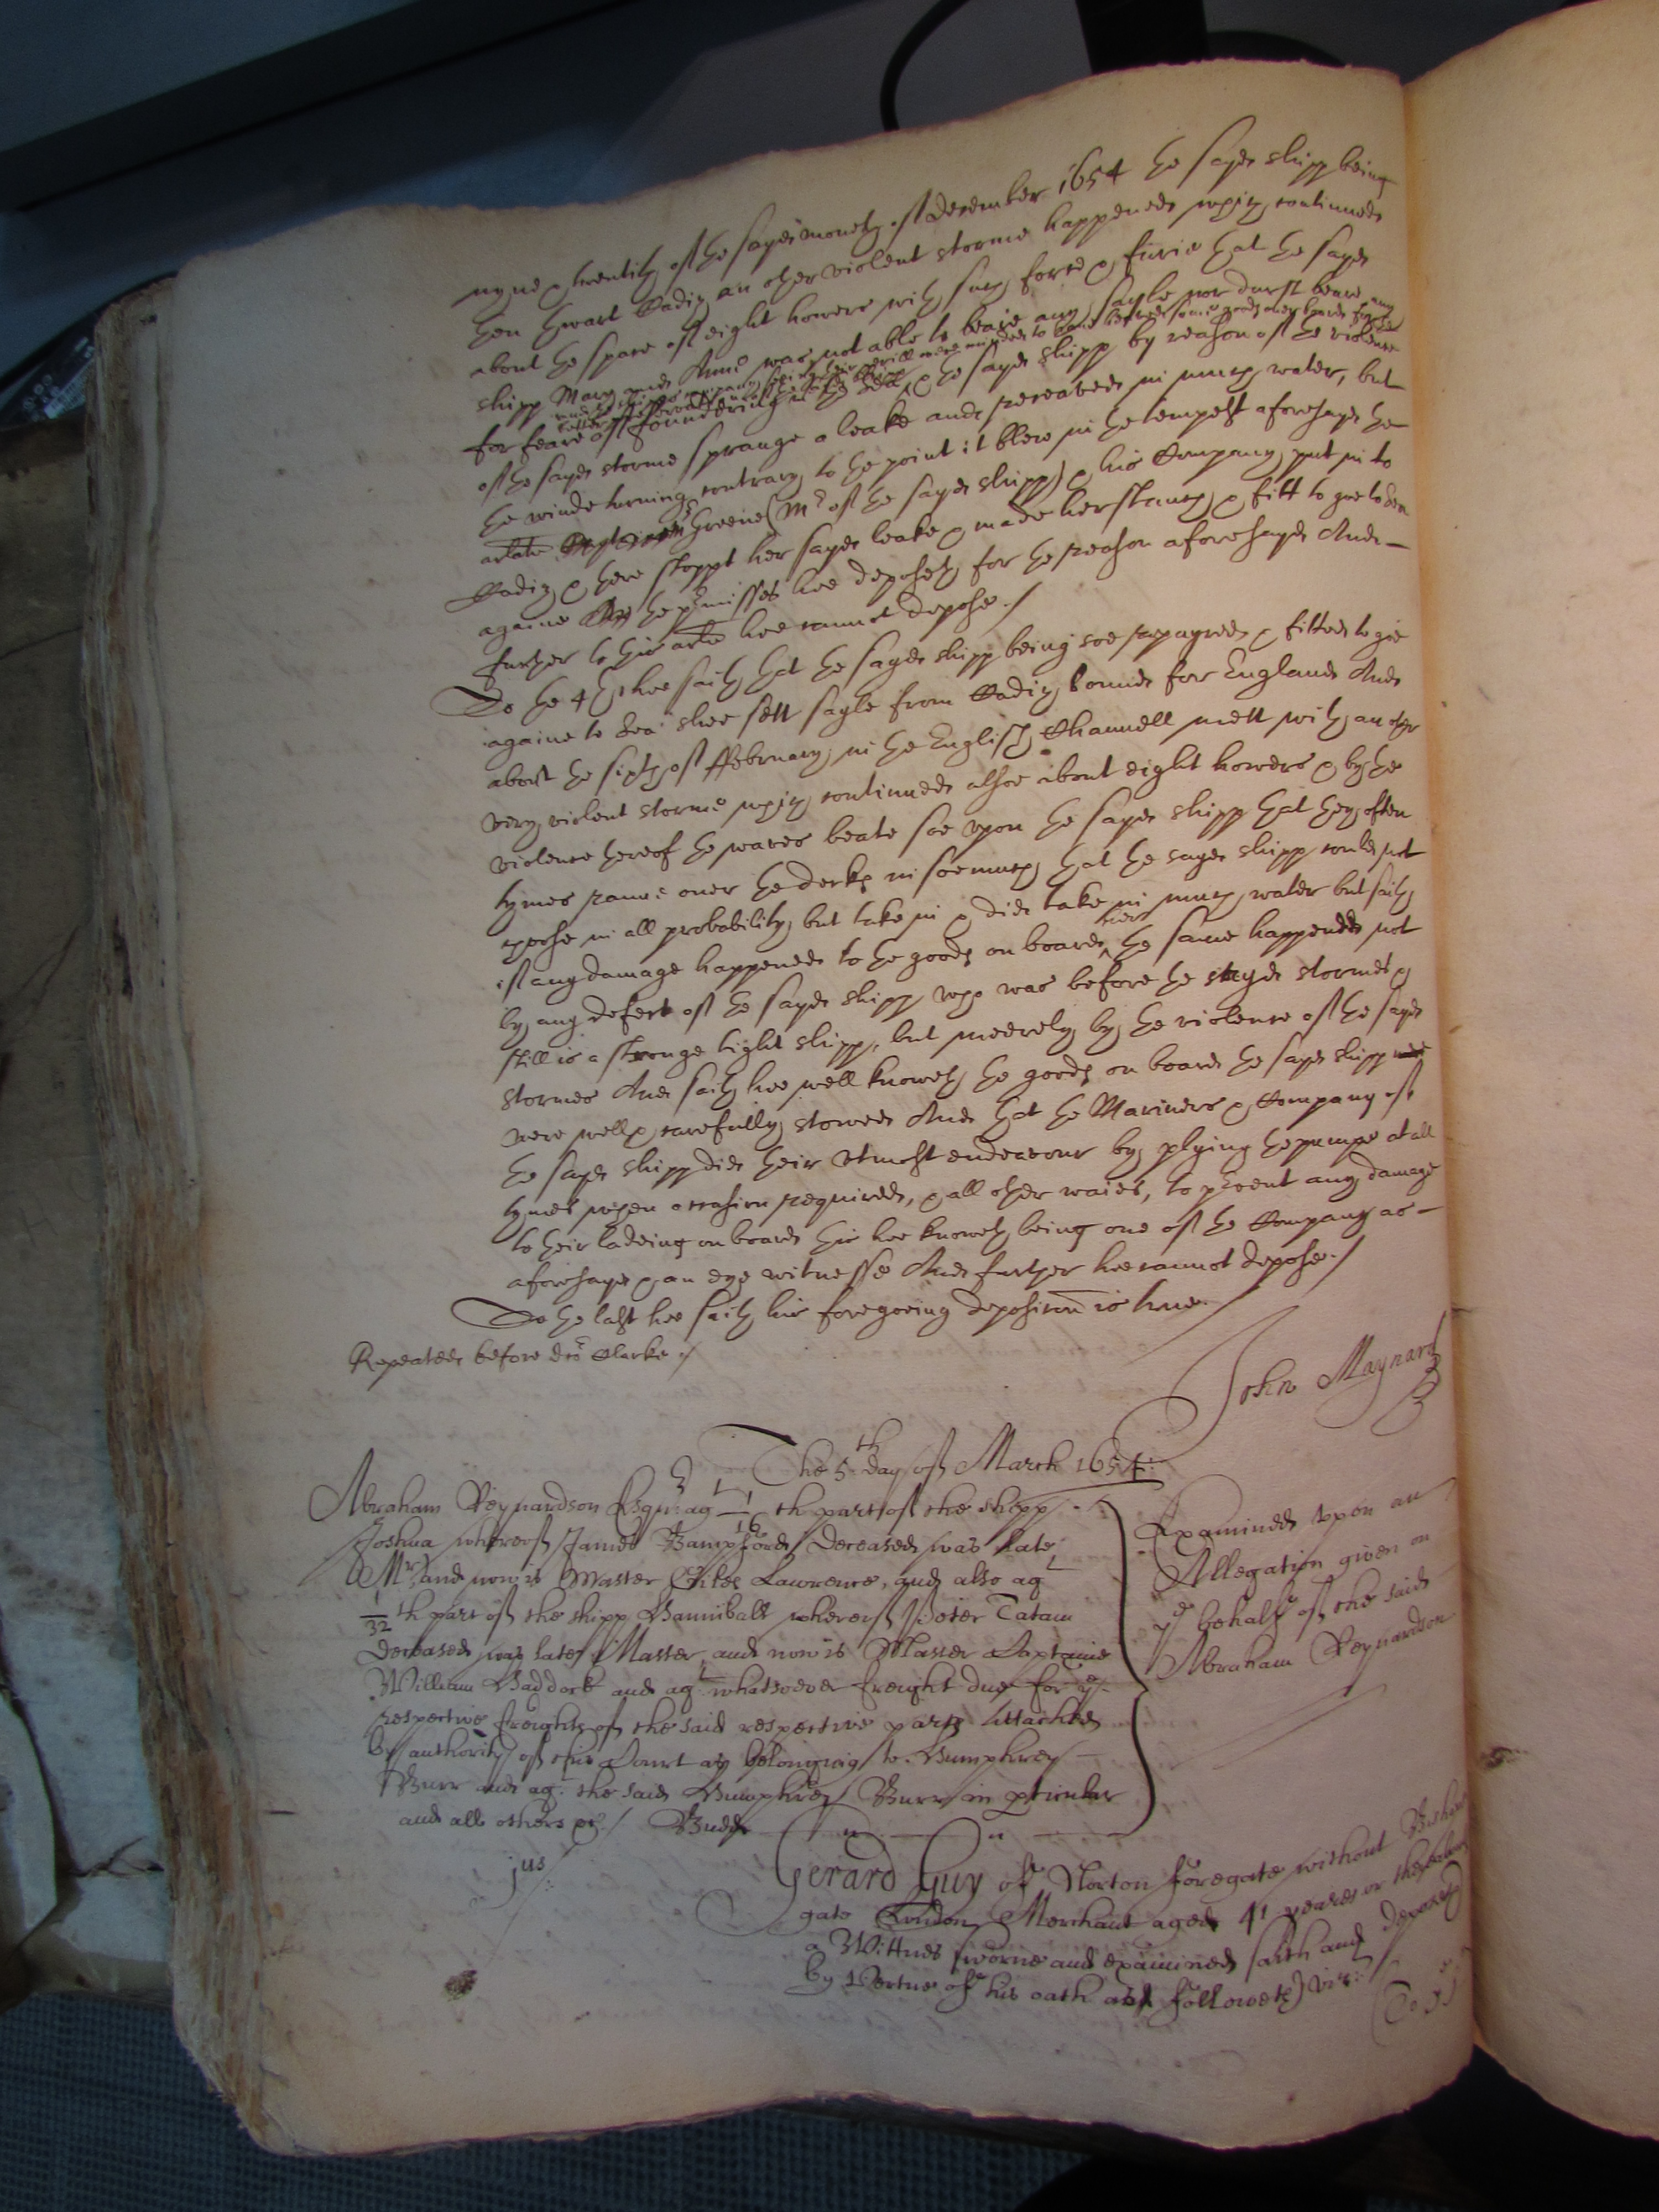 nyne & twentith of the sayd moneth of December 1654 the sayd shipp being
then thwart Cadiz an other violent storme happened which continued
about the space of eight howers with such force & furie that the sayd
shipp Mary and Anne was not able to beare any sayle nor durst beare any
for feare of foundering in the sea & the sayd shipp by reason of the violence
of the sayd storme sprange a leake and receaved in much water, but
the winde turning contrary to the point it blew in the tempest aforesayd the
arlate Greene (Mr of the sayd shipp) & his Company put in to
Cadiz & there stoppt her sayd leake & made her stanch & fitt to goe to Sea
againe the premisses hee deposeth for the reason aforesayd And
further to this arle hee cannot depose./
To the 4th hee saith that the sayd shipp being soe repayred & fitted to goe
againe to Sea shee sett sayle from Cadiz bound for England And
about the sixth of ffebruary in the English Channell mett with an other
very violent storme which continued alsoe about eight howers & by the
violence thereof the waves beate soe upon the sayd shipp that they often
tymes ranne over the decks in soe much that the sayd shipp could not
chose in all probability but take in & did take in much water but saith
if any damage happened to the goods on board her the same happened not
by any defect of the sayd shipp which was before the sayd stormes &
still is a stronge tight shipp, but meerely by the violence of the sayd
stormes And saith hee well knoweth the goods on board the sayd shipp
were well & carefully stowed And that the Mariners & Company of
the sayd shipp did their utmost endeavour by plying the pumpe at all
tymes when occasion required, & all other waies, to prevent any damage
to their ladeing on board this hee knoweth being one of the Company as
aforesayd & an eye witnesse And further hee cannot depose./
To the last hee saith his foregoeing deposicon is true./
Repeated before dor Clarke./
John Maynard
The 5th day of March 1654:
Abraham Reynardson Esqr agt 1/16 th part of the shipp
Joshua whereof James Bampford deceased was late
Mr, and now is Master Giles Lawrence, and also agt
1/32 th part of the shipp Hanniball whereof Peter Tatam
deceased was late Master, and now is Master Captaine
William Haddock and agt whatsoever freight due for ye
respective freights of the said respective parts Attached
by authority of this Court as belonging to Humphrey
Burr and agt the said Humphrey Burr in pticular
and all others &c./ Budd
Examined upon an
Allegation given on
ye behalfe of the said
Abraham Reynardson
jus
Gerard Guy of Norton foregate without Bishops
gate London Merchant aged 41 yeares or thereabouts
a Wittnes sworne and examined saith and deposeth
by vertue of his oath as followeth vizt: